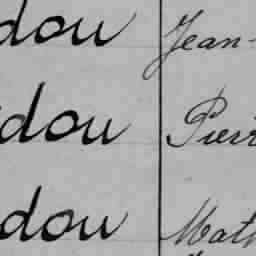 dou Jean-
dou Pierr
dou Math